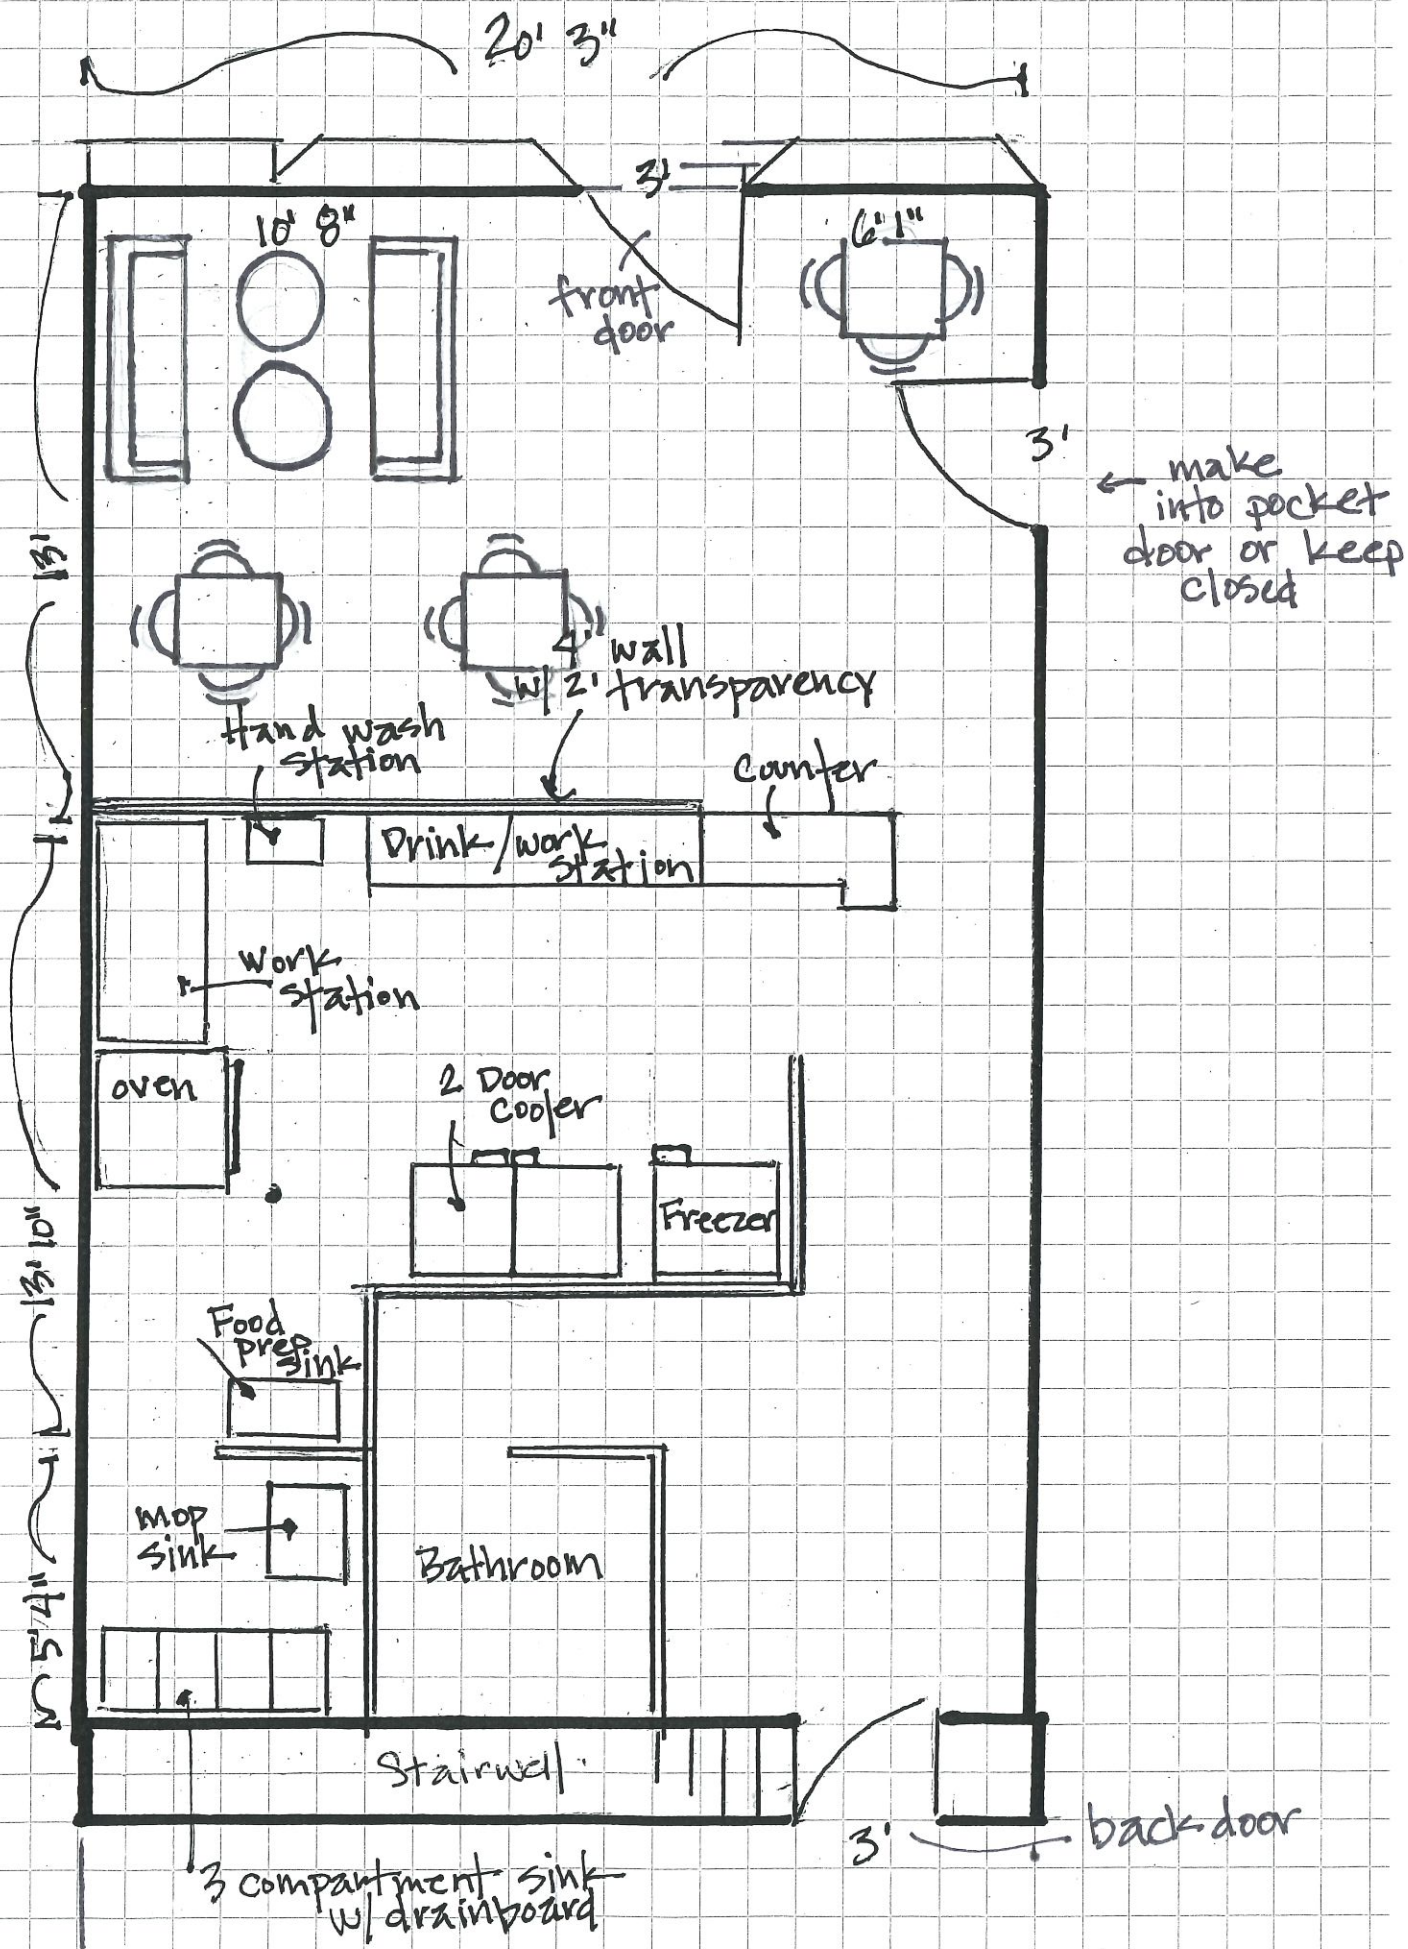 20' 3"
3'
10' 8"
6' 1"
front
door
3'
make
into pocket
door or keep
closed
13'
4' wall
w/ 2' transparency
Hand wash
station
counter
Drink/work
station
Work
station
oven
2 Door
cooler
Freezer
13' 10"
Food
prep
sink
mop
sink
Bathroom
5' 4"
Stairwell
3'
back door
3 compartment sink
w/ drainboard